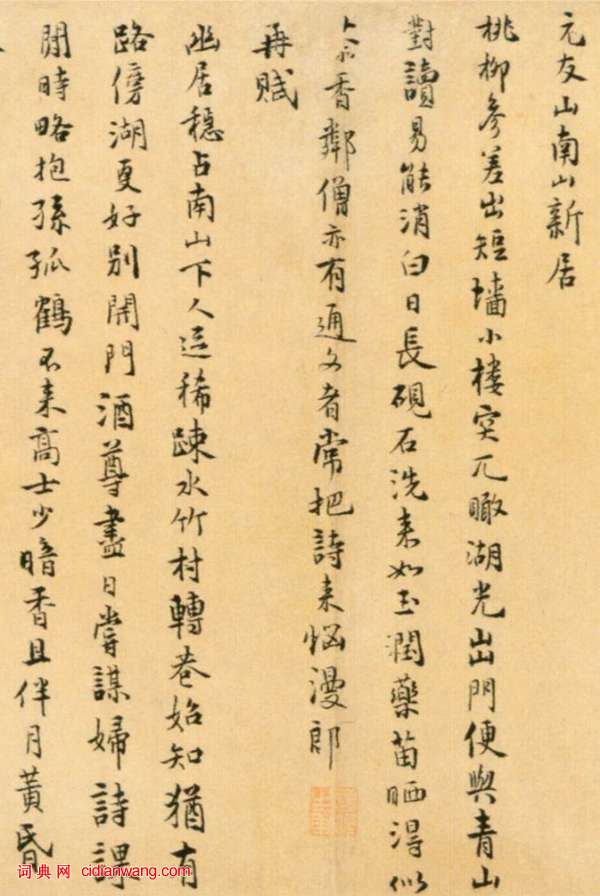 元友山南山新居
桃柳參差出短墻小樓突兀瞰湖光出門便與青山
對讀易能消白日長硯石洗來如玉潤藥苗晒得似
香鄰僧亦有通文者常把詩來惱漫郎
再賦
幽居穩占南山下人迹稀踈水竹村轉巷始知猶有
路傍湖更好別開門酒尊盡日嘗謀婦詩課
閑時略抱孫孤鶴不來高士少暗香且伴月黃昏
词典网 cidianwang.com